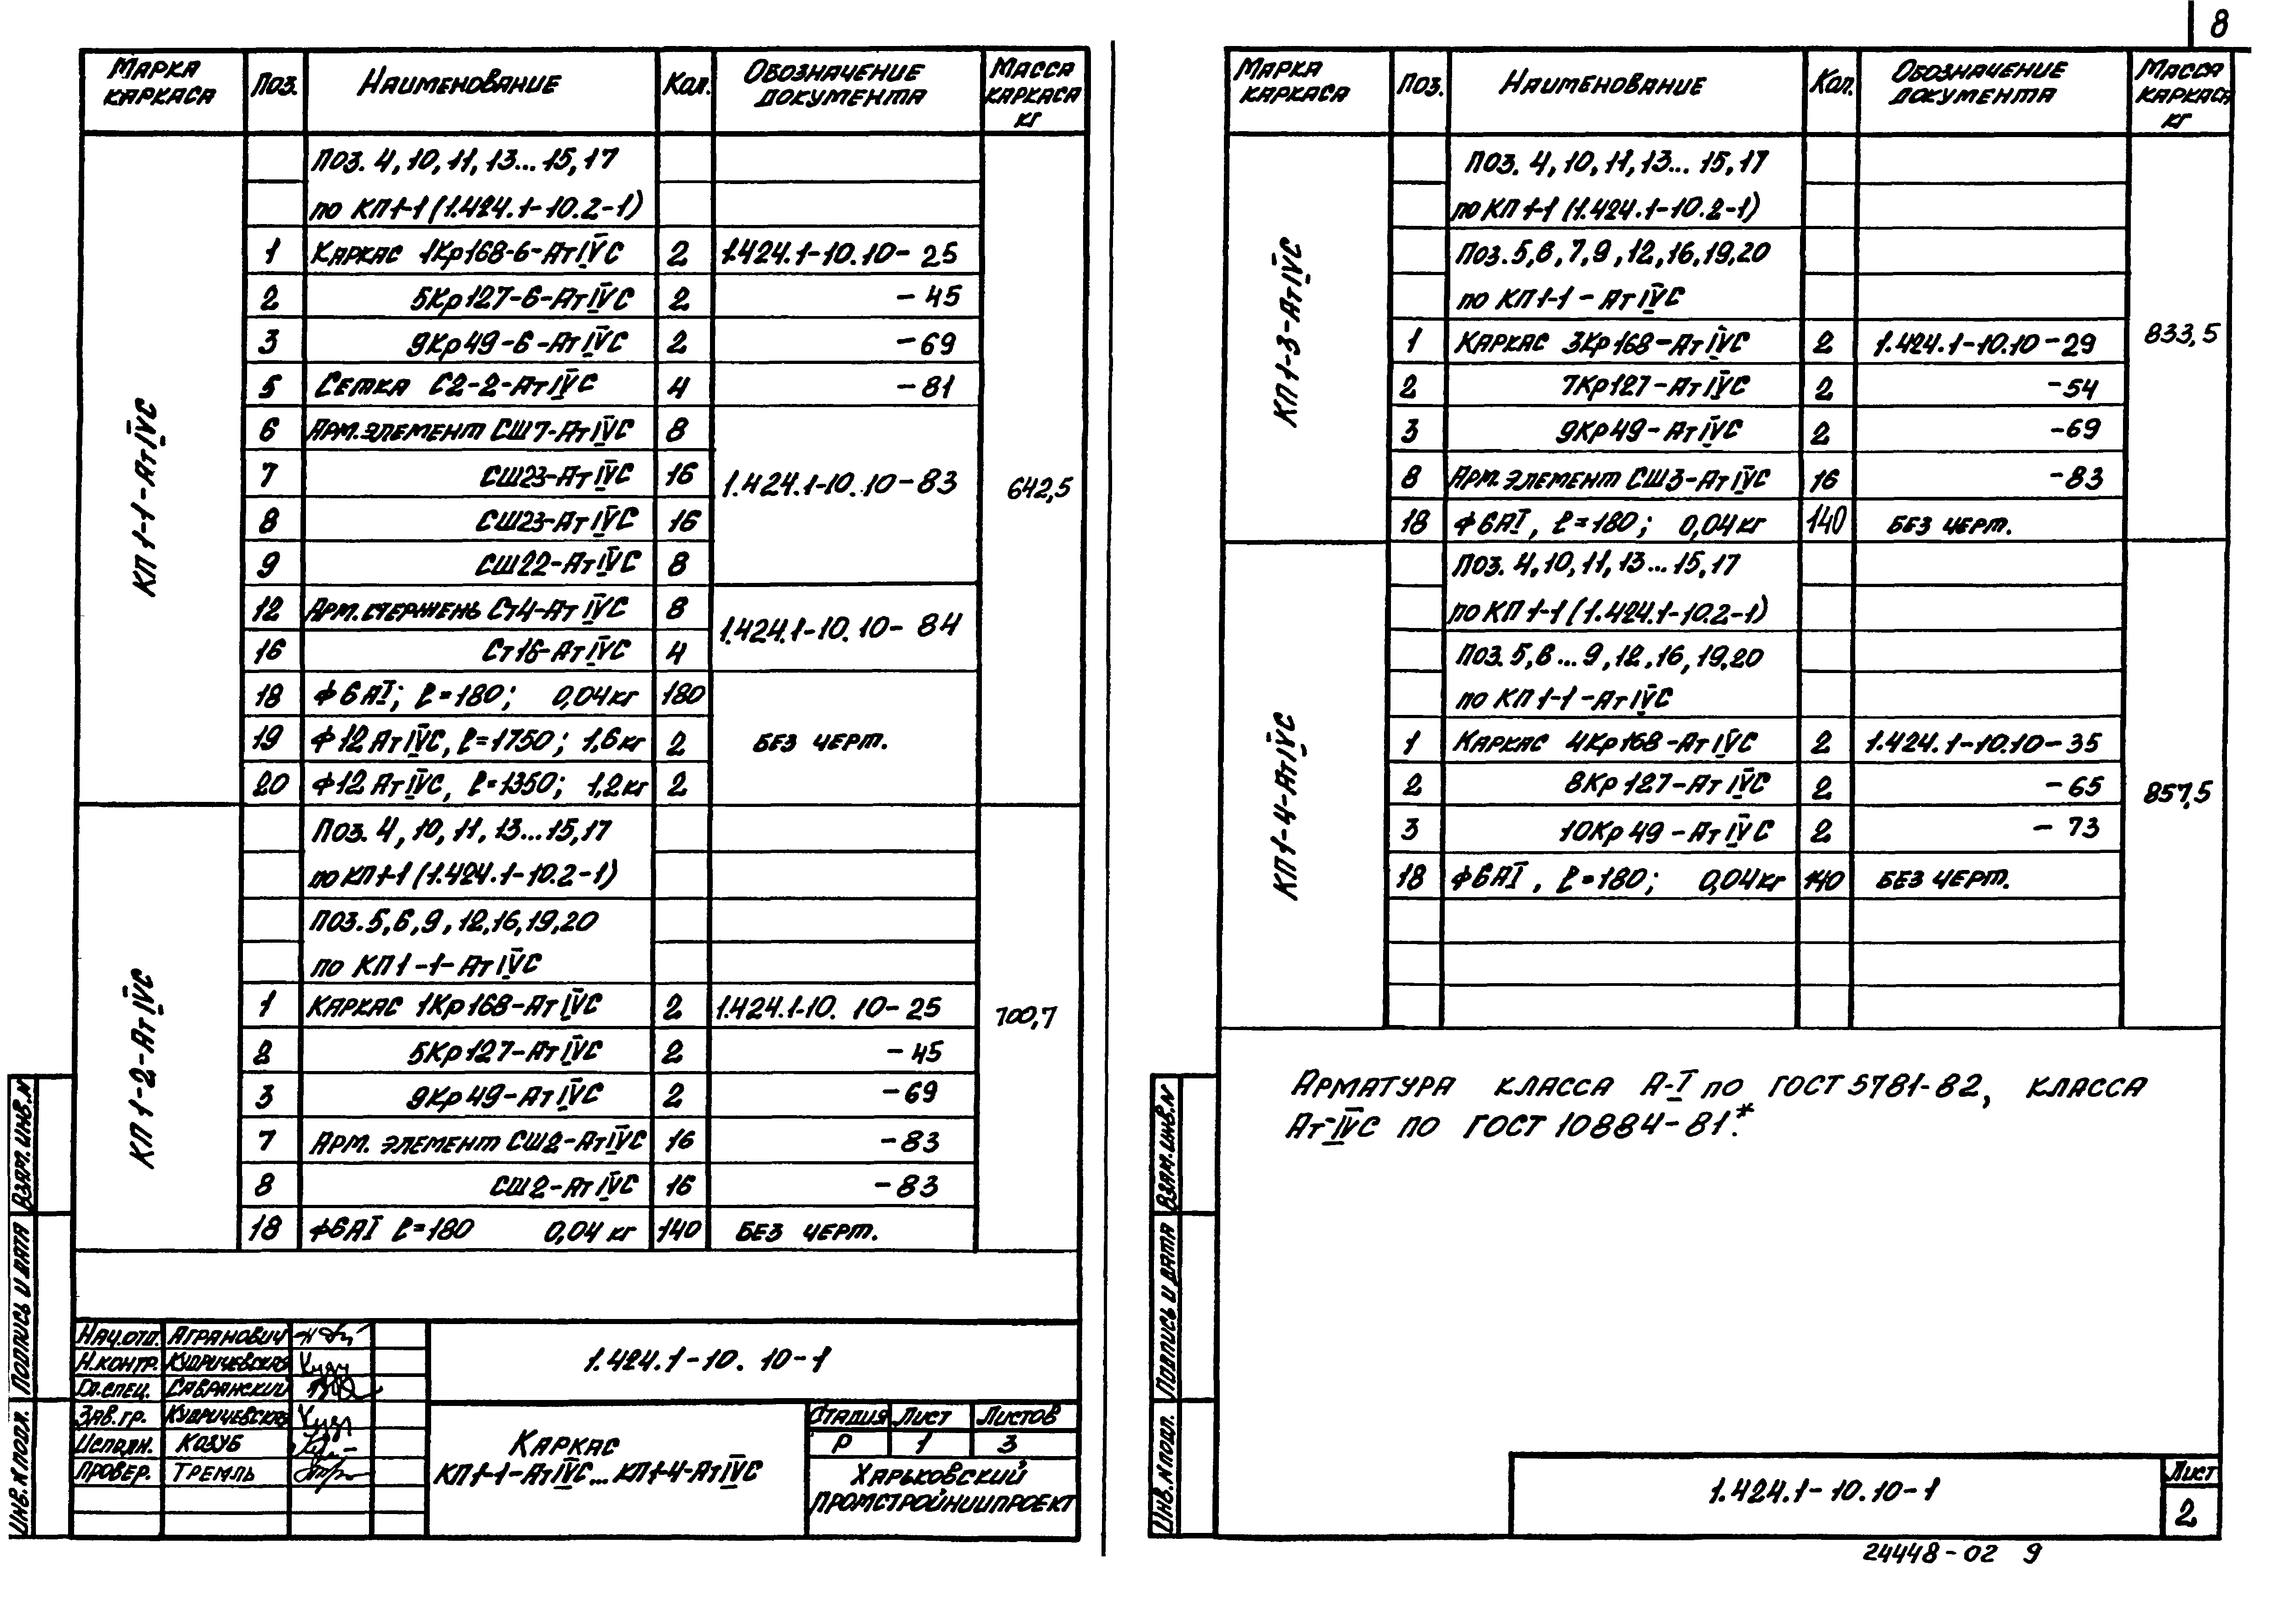 8
Марка каркаса | Поз. | Наименование | Кол. | Обозначение документа | Масса каркаса кг
КП1-1-АтIVС
Поз. 4, 10, 11, 13... 15, 17
по КП1-1 (1.424.1-10.2-1)
1 | Каркас 1Кр168-6-АтIVС | 2 | 1.424.1-10.10-25
2 | 5Кр127-6-АтIVС | 2 | -45
3 | 9Кр49-6-АтIVС | 2 | -69
5 | Сетка С2-2-АтIVС | 4 | -81
6 | Арм. элемент СШ7-АтIVС | 8
7 | СШ23-АтIVС | 16 | 1.424.1-10.10-83 | 642,5
8 | СШ23-АтIVС | 16
9 | СШ22-АтIVС | 8
12 | Арм. стержень Ст4-АтIVС | 8 | 1.424.1-10.10-84
16 | Ст16-АтIVС | 4
18 | Ф6АI; ℓ=180; 0,04кг | 180
19 | Ф12АтIVС, ℓ=1750; 1,6кг | 2 | без черт.
20 | Ф12АтIVС, ℓ=1350; 1,2кг | 2
КП1-2-АтIVС
Поз. 4, 10, 11, 13...15, 17
по КП1-1 (1.424.1-10.2-1)
Поз. 5, 6, 9, 12, 16, 19, 20
по КП1-1-АтIVС
1 | Каркас 1Кр168-АтIVС | 2 | 1.424.1-10.10-25 | 700,7
2 | 5Кр127-АтIVС | 2 | -45
3 | 9Кр49-АтIVС | 2 | -69
7 | Арм. элемент СШ2-АтIVС | 16 | -83
8 | СШ2-АтIVС | 16 | -83
18 | Ф6АI ℓ=180 0,04 кг | 140 | без черт.
Нач.отд. | Агранович
Н.контр. | Кудричевская
Гл.спец. | Савранский
Зав.гр. | Кудричевская
Исполн. | Козуб
Провер. | Тремль
1.424.1-10.10-1
Каркас
КП1-1-АтIVС...КП1-4-АтIVС
Стадия | Лист | Листов
Р | 1 | 3
Харьковский
ПромстройНИИпроект
Взам.инв.N
Подпись и дата
Инв.N подл.
Марка каркаса | Поз. | Наименование | Кол. | Обозначение документа | Масса каркаса кг
КП1-3-АтIVС
Поз. 4, 10, 11, 13... 15, 17
по КП1-1 (1.424.1-10.2-1)
Поз. 5, 6, 7, 9, 12, 16, 19, 20
по КП1-1-АтIVС
1 | Каркас 3Кр168-АтIVС | 2 | 1.424.1-10.10-29 | 833,5
2 | 7Кр127-АтIVС | 2 | -54
3 | 9Кр49-АтIVС | 2 | -69
8 | Арм. элемент СШ3-АтIVС | 16 | -83
18 | Ф6АI, ℓ=180; 0,04кг | 140 | без черт.
КП1-4-АтIVС
Поз. 4, 10, 11, 13...15, 17
по КП1-1 (1.424.1-10.2-1)
Поз. 5, 6...9, 12, 16, 19, 20
по КП1-1-АтIVС
1 | Каркас 4Кр168-АтIVС | 2 | 1.424.1-10.10-35
2 | 8Кр127-АтIVС | 2 | -65 | 857,5
3 | 10Кр49-АтIVС | 2 | -73
18 | Ф6АI, ℓ=180; 0,04кг | 140 | без черт.
Арматура класса А-I по ГОСТ 5781-82, класса
Ат-IVС по ГОСТ 10884-81.*
Взам.инв.N
Подпись и дата
Инв.N подл.
1.424.1-10.10-1
Лист
2
24448-02 9